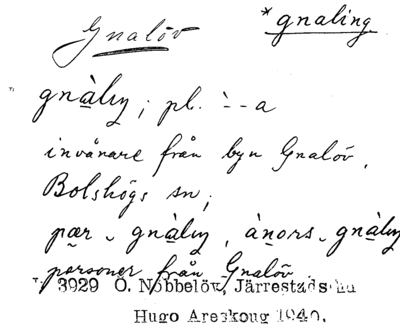 Gnalöv *gnaling
gnàlıŋ; pl. `--a
invånare från byn Gnalöv,
Bolshögs sn;
pær ˬ gnàlıŋ, ànors ˬ gnàlıŋ
personer från Gnalöv
3929 Ö. Nöbbelöv, Järrestads hd
Hugo Areskoug 1940.